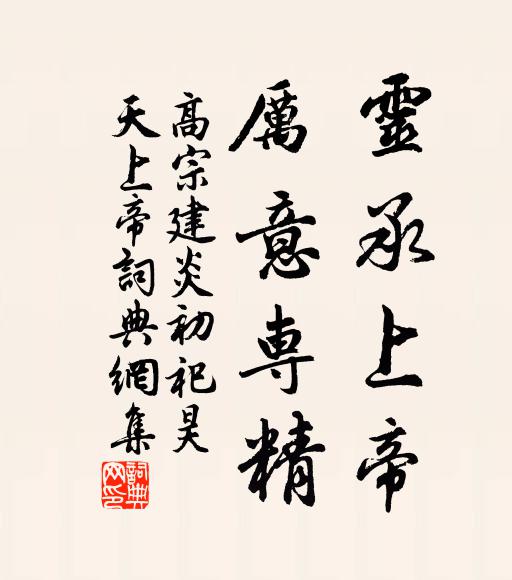 靈承上帝
厲意專精
高宗建炎初祀昊
天上帝詞典網集
詞典
网印